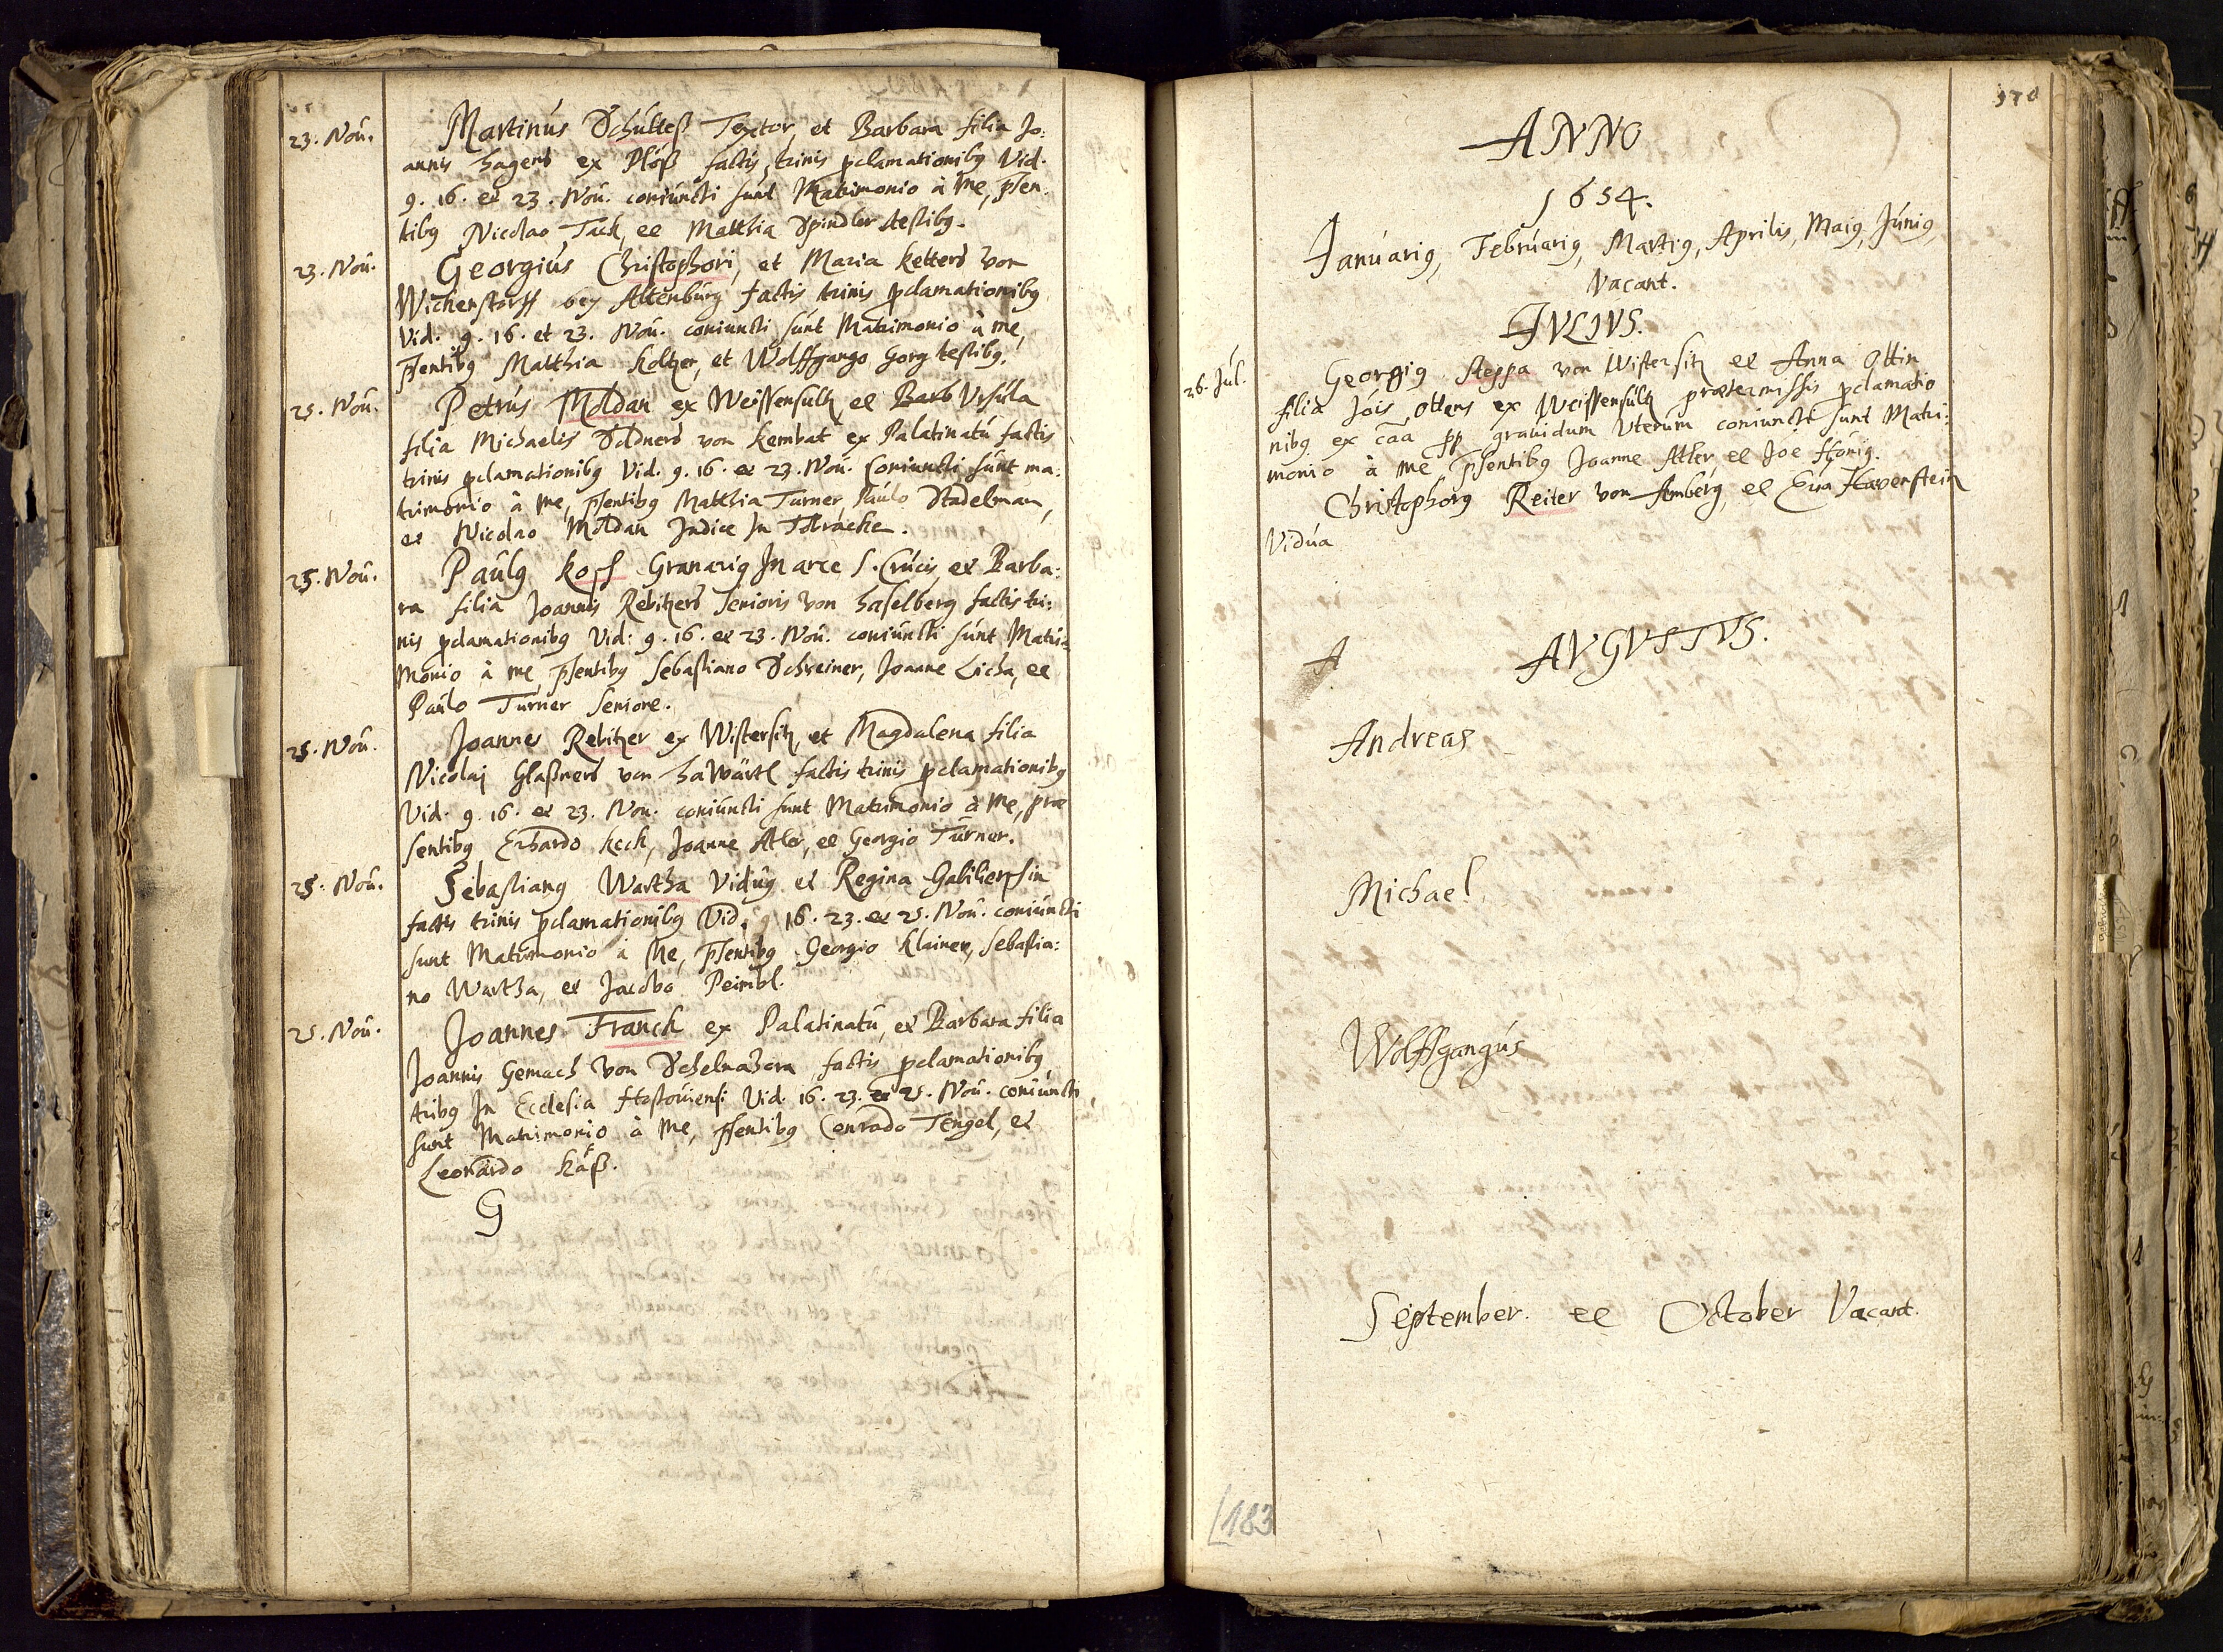 23. Nou. Martinus Schultess Textor, et Barbara filia Jo:
annis Hagers ex Plöß factis trinis pclamationibg Vid.
9. 16. et 23. Nou. coniuncti sunt Matrimonio à me, psen
tibg Nicolao Tack, et Matthia Spindler testibg.
23. Nou. Georgius Christophori, et Maria ketters von
Wickerstorff bey Altenburg factis trinis pclamationibg
Vid. 9. 16. et 23. Nou. coniuncti sunt Matrimonio à me,
psentibg Matthia Koltzer, et Wolffgango Gorg testibg.
25. Nou. Petrus Moldan ex Weissensultz et Barb Ursula
filia Michaelis Soldners von kembat ex Palatinatu factis
trinis pclamationibg Vid. 9. 16. et 23. Nou. Coniuncti sunt ma:
trimonio à me, psentibg Matthia Turner, Paulo Stadelman,
et Nicolao Moldan Judice In
25. Nou. Paulg Kopf Granarig In arce S. Crucis, et Barba:
ra filia Joannis Rebitzers Senioris von Haselberg factis tri:
nis pclamationibg Vid: 9. 16. et 23. Nou. coniuncti sunt Matri:
monio à me, psentibg Sebastiano Schreiner, Joanne Licha, et
Paulo Turner Seniore.
25. Nou. Joannes Rebitzer ex Wistersitz, et Magdalena filia
Nicolaj Glaßners von factis trinis pclamationibg
Vid. 9. 16. et 23. Nou. coniuncti sunt Matrimonio à me, præ
sentibg Erhardo Keck, Joanne Atler, et Georgio Turner.
25. Nou. Sebastiang Wartha Vidug et Regina
factis trinis pclamationibg Vid. 9 16. 23. et 25. Nou. coniuncti
sunt Matrimonio à Me, psentibg Georgio Klainer, Sebastia:
no Wartha, et Jacobo Peimbl.
25. Nou. Joannes Franck ex Palatinatu, et Barbara filia
Joannis Gemach von factis pclamationibg
tribg In Ecclesia Hostouiensi Vid. 16. 23. et 25. Nou. coniuncti
sunt Matrimonio à Me, psentibg Conrado Tengel, et
Leonardo Käß.
G
170
ANNO
1654.
Januarig, Februarig, Martig, Aprilis, Maig, Junig,
Vacant.
JVLIVS.
26. Jul. Georgig Steppa von Wistersitz et Anna Ottin
filia Jöis Ottens ex Weissensultz prætermissis pclamatio
nibg ex cãa pp grauidum Uterum coniuncti sunt Matri:
monio à me psentibg Joanne Atler et Joe Hönig.
Christophorg Reiter von Amberg, et Eua Havenstein
Vidua
A AVGVSTVS.
Andreas
Michael
Wolffgangus
September. et October Vacant.
183